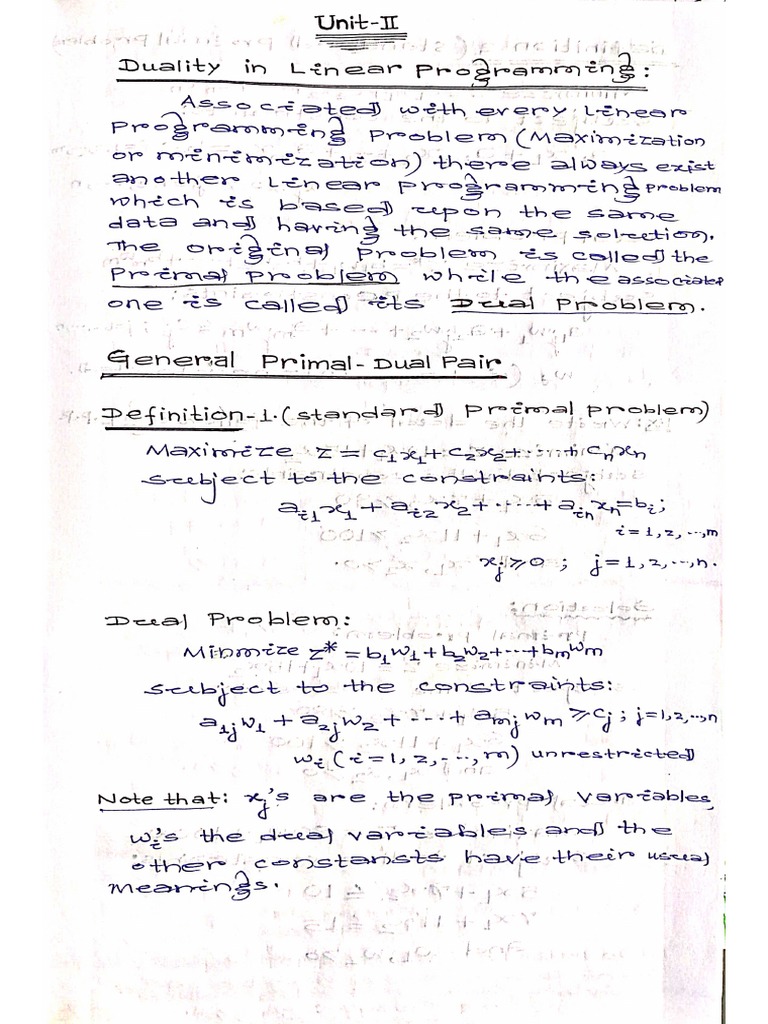 Unit-II
Duality in Linear Programming:
Associated with every Linear
Programming Problem (Maximization
or minimization) there always exist
another Linear programming Problem
which is based upon the same
data and having the same solution.
The original Problem is called the
Primal Problem while the associate
one is called its Dual Problem.
General Primal-Dual Pair
Definition-1. (standard Primal Problem)
Maximize z = c₁x₁ + c₂x₂ + ... + cₙxₙ
subject to the constraints:
aᵢ₁x₁ + aᵢ₂x₂ + ... + aᵢₙxₙ = bᵢ;
i = 1, 2, ..., m
xⱼ ≥ 0 ; j = 1, 2, ..., n.
Dual Problem:
Minmize z* = b₁w₁ + b₂w₂ + ... + bₘwₘ
subject to the constraints:
a₁ⱼw₁ + a₂ⱼw₂ + ... + aₘⱼwₘ ≥ cⱼ ; j = 1, 2, .., n
wᵢ (i = 1, 2, ..., m) unrestricted
Note that: xⱼ's are the primal variables,
wᵢ's the dual variables and the
other constansts have their usual
meanings.